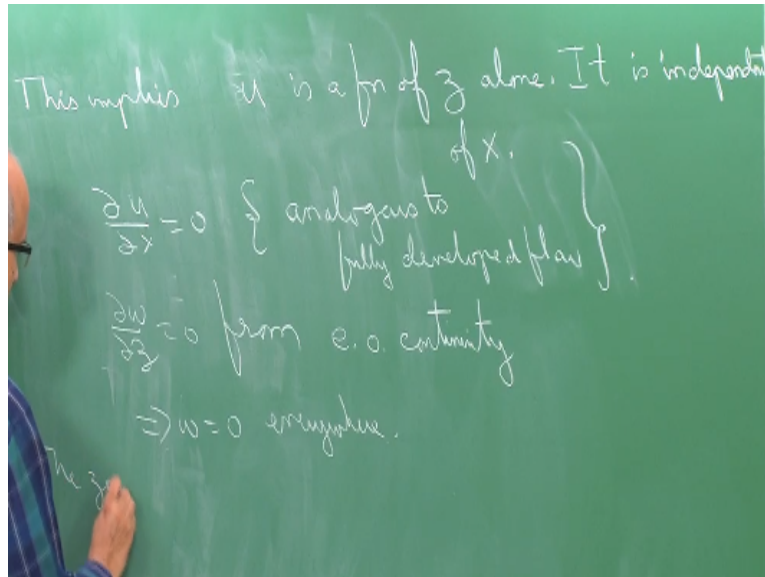 This implies u is a fn of z alone. It is independent
of x.
∂u/∂x = 0 { analogous to
fully developed flow }.
∂w/∂z = 0 from e.o. continuity
⇒ w = 0 everywhere.
The